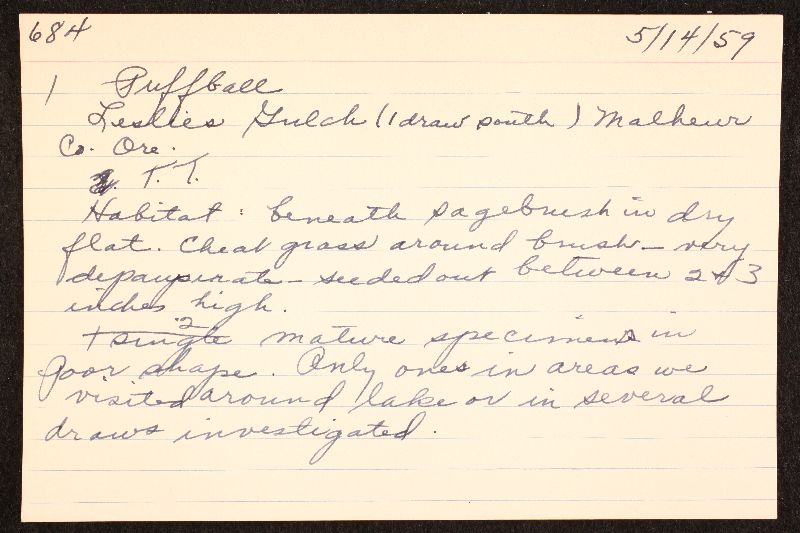 684 5/14/59
1 Puffball
Leslies Gulch (1 draw south) Malheur
Co. Ore.
T. T.
Habitat: beneath sagebrush in dry
flat. Cheat grass around brush - very
depauperate - seeded out between 2 & 3
inches high.
2
single mature specimens in
poor shape. Only ones in areas we
visited around lake or in several
draws investigated.